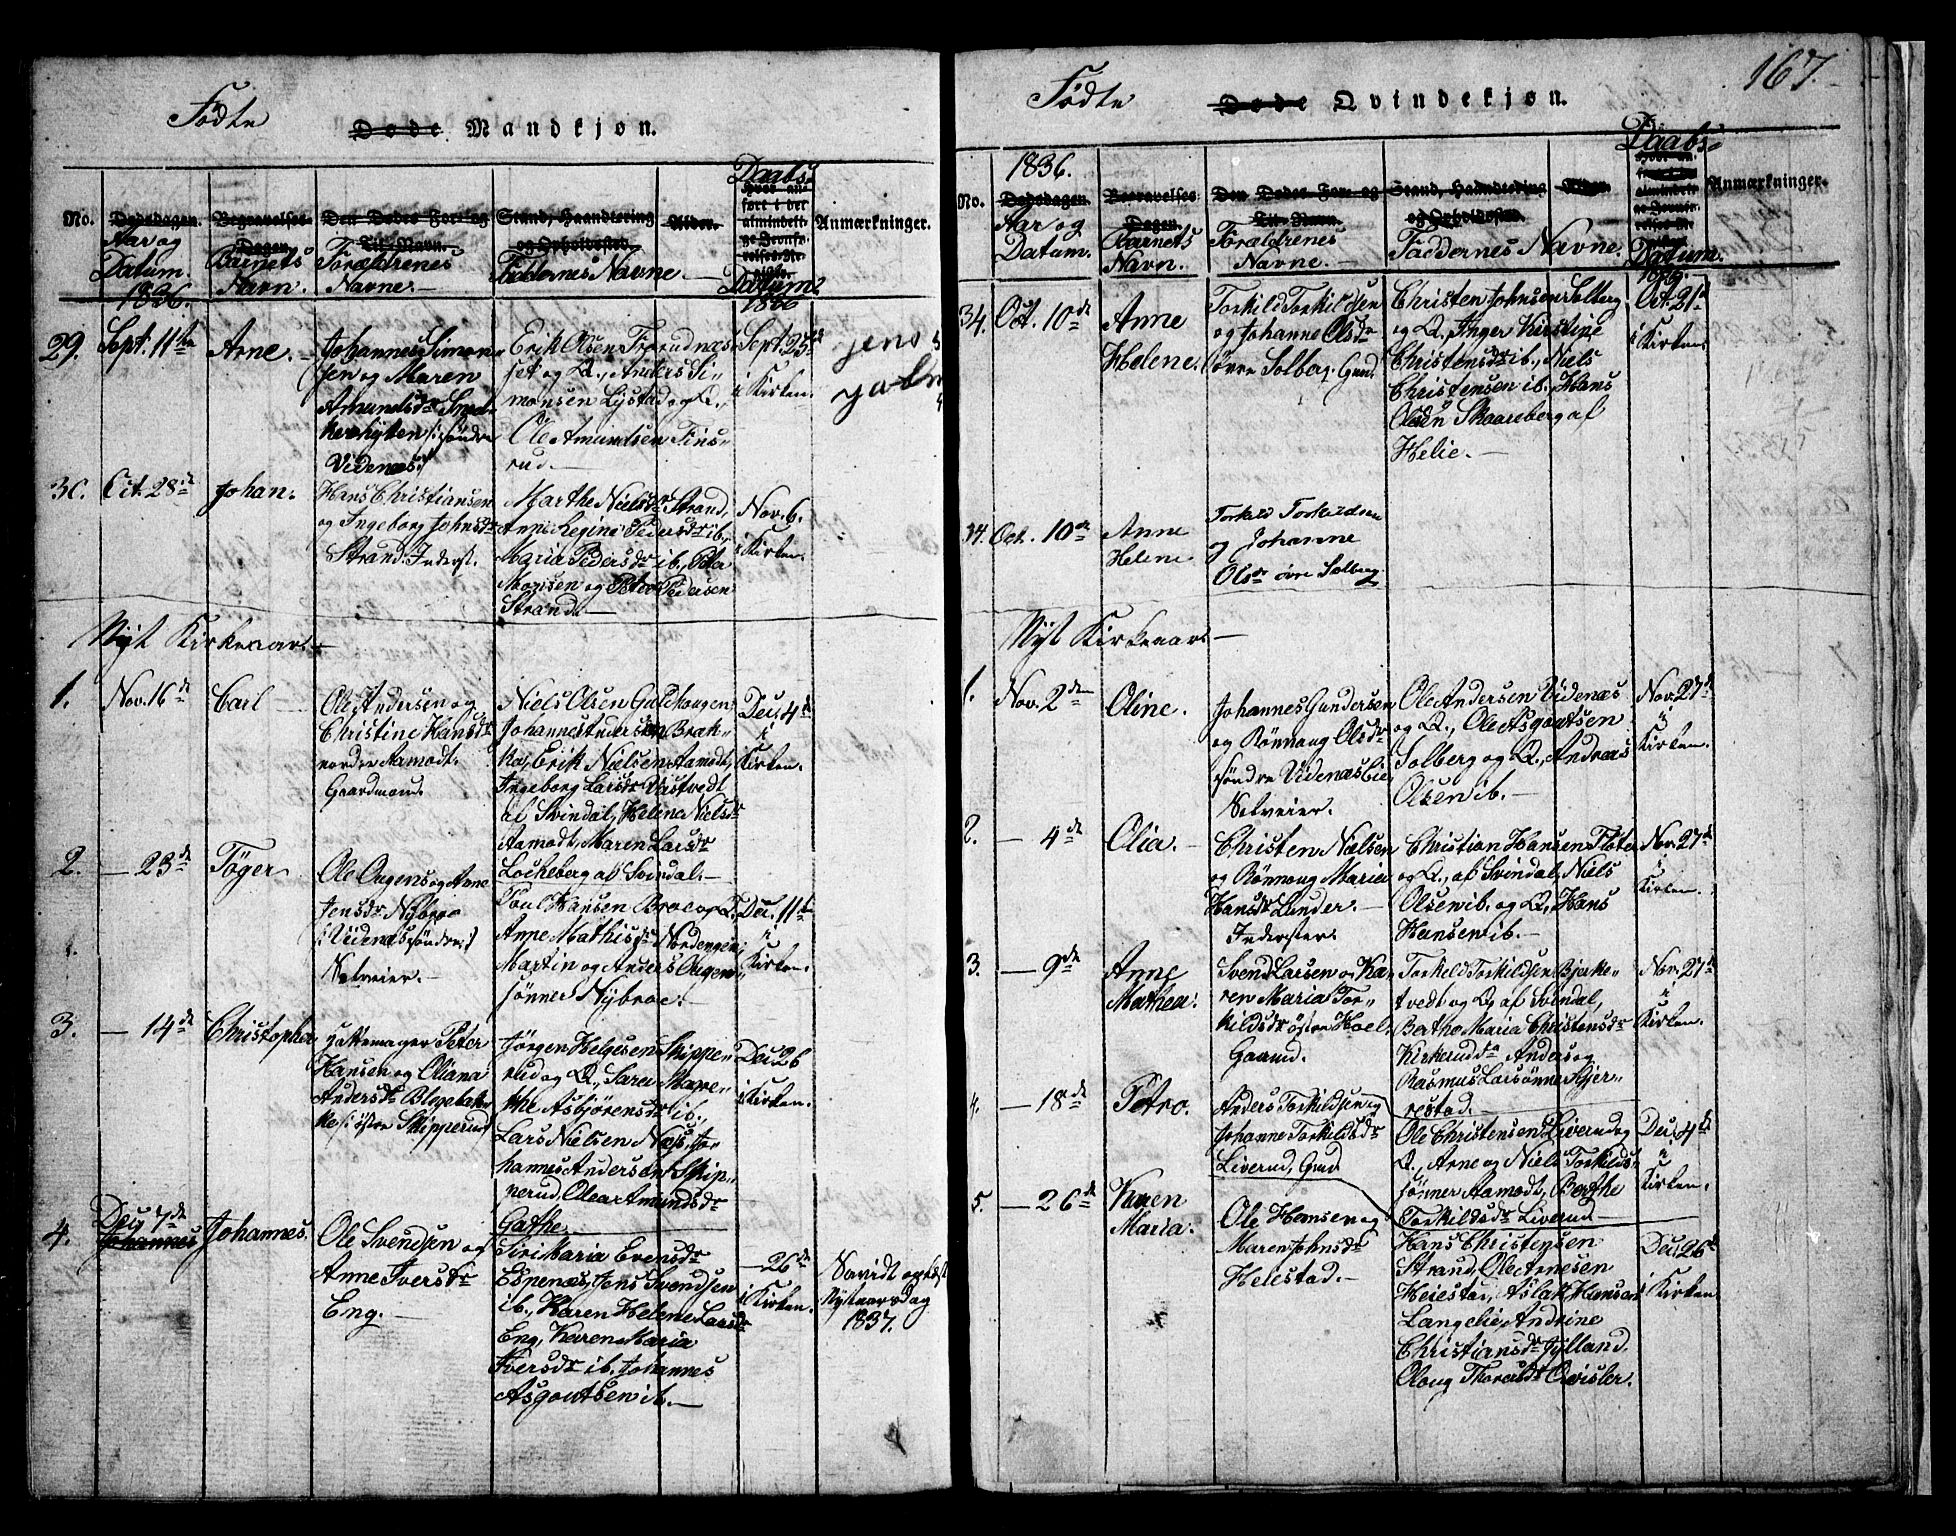 Fødte
Døde Mandkjøn.
No.
Dødsdagen.
Aar og
Datum.
1836.
Begravelses-
Dagen.
Barnets
Navn.
Den Dødes For- og
Til-Navn.
Forældrenes
Navne.
Stand, Haandtering
og Opholdssted.
Faddernes Navne
Alder.
Daabs-
Datum
1836
Anmærkninger.
29.
Sept. 11te
Arne.
Johannes Simon-
sen og Maren
Amundsdr Smed-
kerhytten /: søndre
Videnæs :/
Erik Olsen
set og Q., Anders Si-
monsen Lystad og Q.,
Ole Amundsen Fins-
rud.
Sept. 25de
i Kirken.
Jens
30.
Oct. 28de
Johan.
Hans Christiansen
og Ingeborg Johnsdr
Strand. Inderst.
Marthe Nielsdr Strand,
Anne Regine Pedersdr ib.,
Maria Pedersdr ib., Peter
Monsen og Petro Pedersen
Strand.
Nov. 6.
i Kirken.
Nyt Kirkeaar.
1.
Nov. 16de
Carl
Ole Andersen og
Christine Hansdr
nordre Aamodt.
Gaardmand.
Niels Olsen Guldhaugen,
Johannes Andersen Bræk-
ka, Erik Nielsen Aamodt,
Ingeborg Larsdr Vastvedt
af Svindal, Helene Nielsdr
Aamodt, Maren Larsdr
Lockeberg af Svindal.
Dec. 4de
i
Kirken.
2.
— 23de
Töger
Ole Ougens og Anne
Jensdr Nybroe
/: Videnæs søndre :/
Selveier.
Poul Hansen Broe og Q.
Anne Mathisdr Nordengen,
Martin og Anders Ougen-
sønner Nybroe.
Dec. 11te
i
Kirken.
3.
— 14de
Christopher
Hattemager Peter
Hansen og Oliana
Andersdr Blegebak-
ke /: østre Skipperud
Jørgen Helgesen Skippe-
rud og Q., Sara Mare-
the Asbjörensdr ib.,
Lars Nielsen Næs, Jo-
hannes Andersen Skip-
perud, Olea Amundsdr
Gathe
Dec. 26
i Kirken.
4.
Dec. 7de
Johannes
Johannes.
Ole Svendsen og
Anne Iversdr
Eng.
Siri Maria Evensdr
Espenæs, Jens Svendsen
ib., Karen Helene Larsdr
Eng, Karen Maria
Iversdr ib., Johannes
Asgoutsen ib.
— 26de
i Kirken.
Nytaarsdag
1837.
167.
Fødte
Døde Qvindekjøn.
No.
1836.
Dødsdagen.
Aar og
Datum.
Begravelses-
Dagen.
Barnets
Navn.
Den Dødes For- og
Til-Navn.
Forældrenes
Navne.
Stand, Haandtering
og Opholdssted.
Faddernes Navne.
Alder.
Daabs-
Datum.
1836.
Anmærkninger.
34.
Oct. 10de
Anne
Helene.
Torkild Torkildsen
og Johanne Olsdr
øvre Solberg. Gmd.
Christen Johnsen Solberg
og Q., Inger Kirstine
Christensdr ib., Niels
Christensen ib., Hans
Olsen Skaareberg af
Helie.
Oct. 21de
i Kirken.
34.
Oct. 10de
Anne
Helene
Torkild Torkildsen
og Johanne
Olsdr øvre Solberg
Nyt Kirkeaar
1.
Nov. 2den
Oline.
Johannes Gundersen
og Rönnoug Olsdr
søndre Videnæs
Selveier.
Ole Andersen Videnæs
og Q., Ole Asgoutsen
Solberg og Q., Andreas
Olsen ib.
Nov. 27de
i
Kirken.
2.
— 4de
Olia.
Christen Nielsen
og Rönnoug Maria
Hansdr Lunder.
Inderster.
Christian Hansen Fløter
og Q., af Svindal, Niels
Olsen ib. og Q., Hans
Hansen ib.
Nov. 27de
i
Kirken.
3.
— 9de
Anne
Mathea.
Svend Larsen og Ka-
ren Maria Tor-
kildsdr østre Hoel.
Gaamd.
Torkild Torkildsen Bjerke-
tvedt og Q. af Svindal,
Berthe Maria Christensdr
Kirkerud, Anders og
Rasmus Larsønner Gjer-
restad.
Nov. 27de
i
Kirken.
4.
— 18de
Petro.
Anders Torkildsen og
Johanne Torkildsdr
Liverud, Gmd
Ole Christensen Liverud og
Q., Arne og Niels Torkilds-
sønner Aamodt, Berthe
Torkildsdr Liverud
Dec. 4de
i
Kirken.
5.
— 26de
Karen
Maria.
Ole Hansen og
Maren Johnsdr
Heiestad.
Hans Christensen
Strand, Ole Arnesen
Heiestad, Aslak Hansen
Langelie, Andrine
Christiansdr Jylland,
Oloug Thoresdr Qvisler.
Dec. 26de
i Kirken